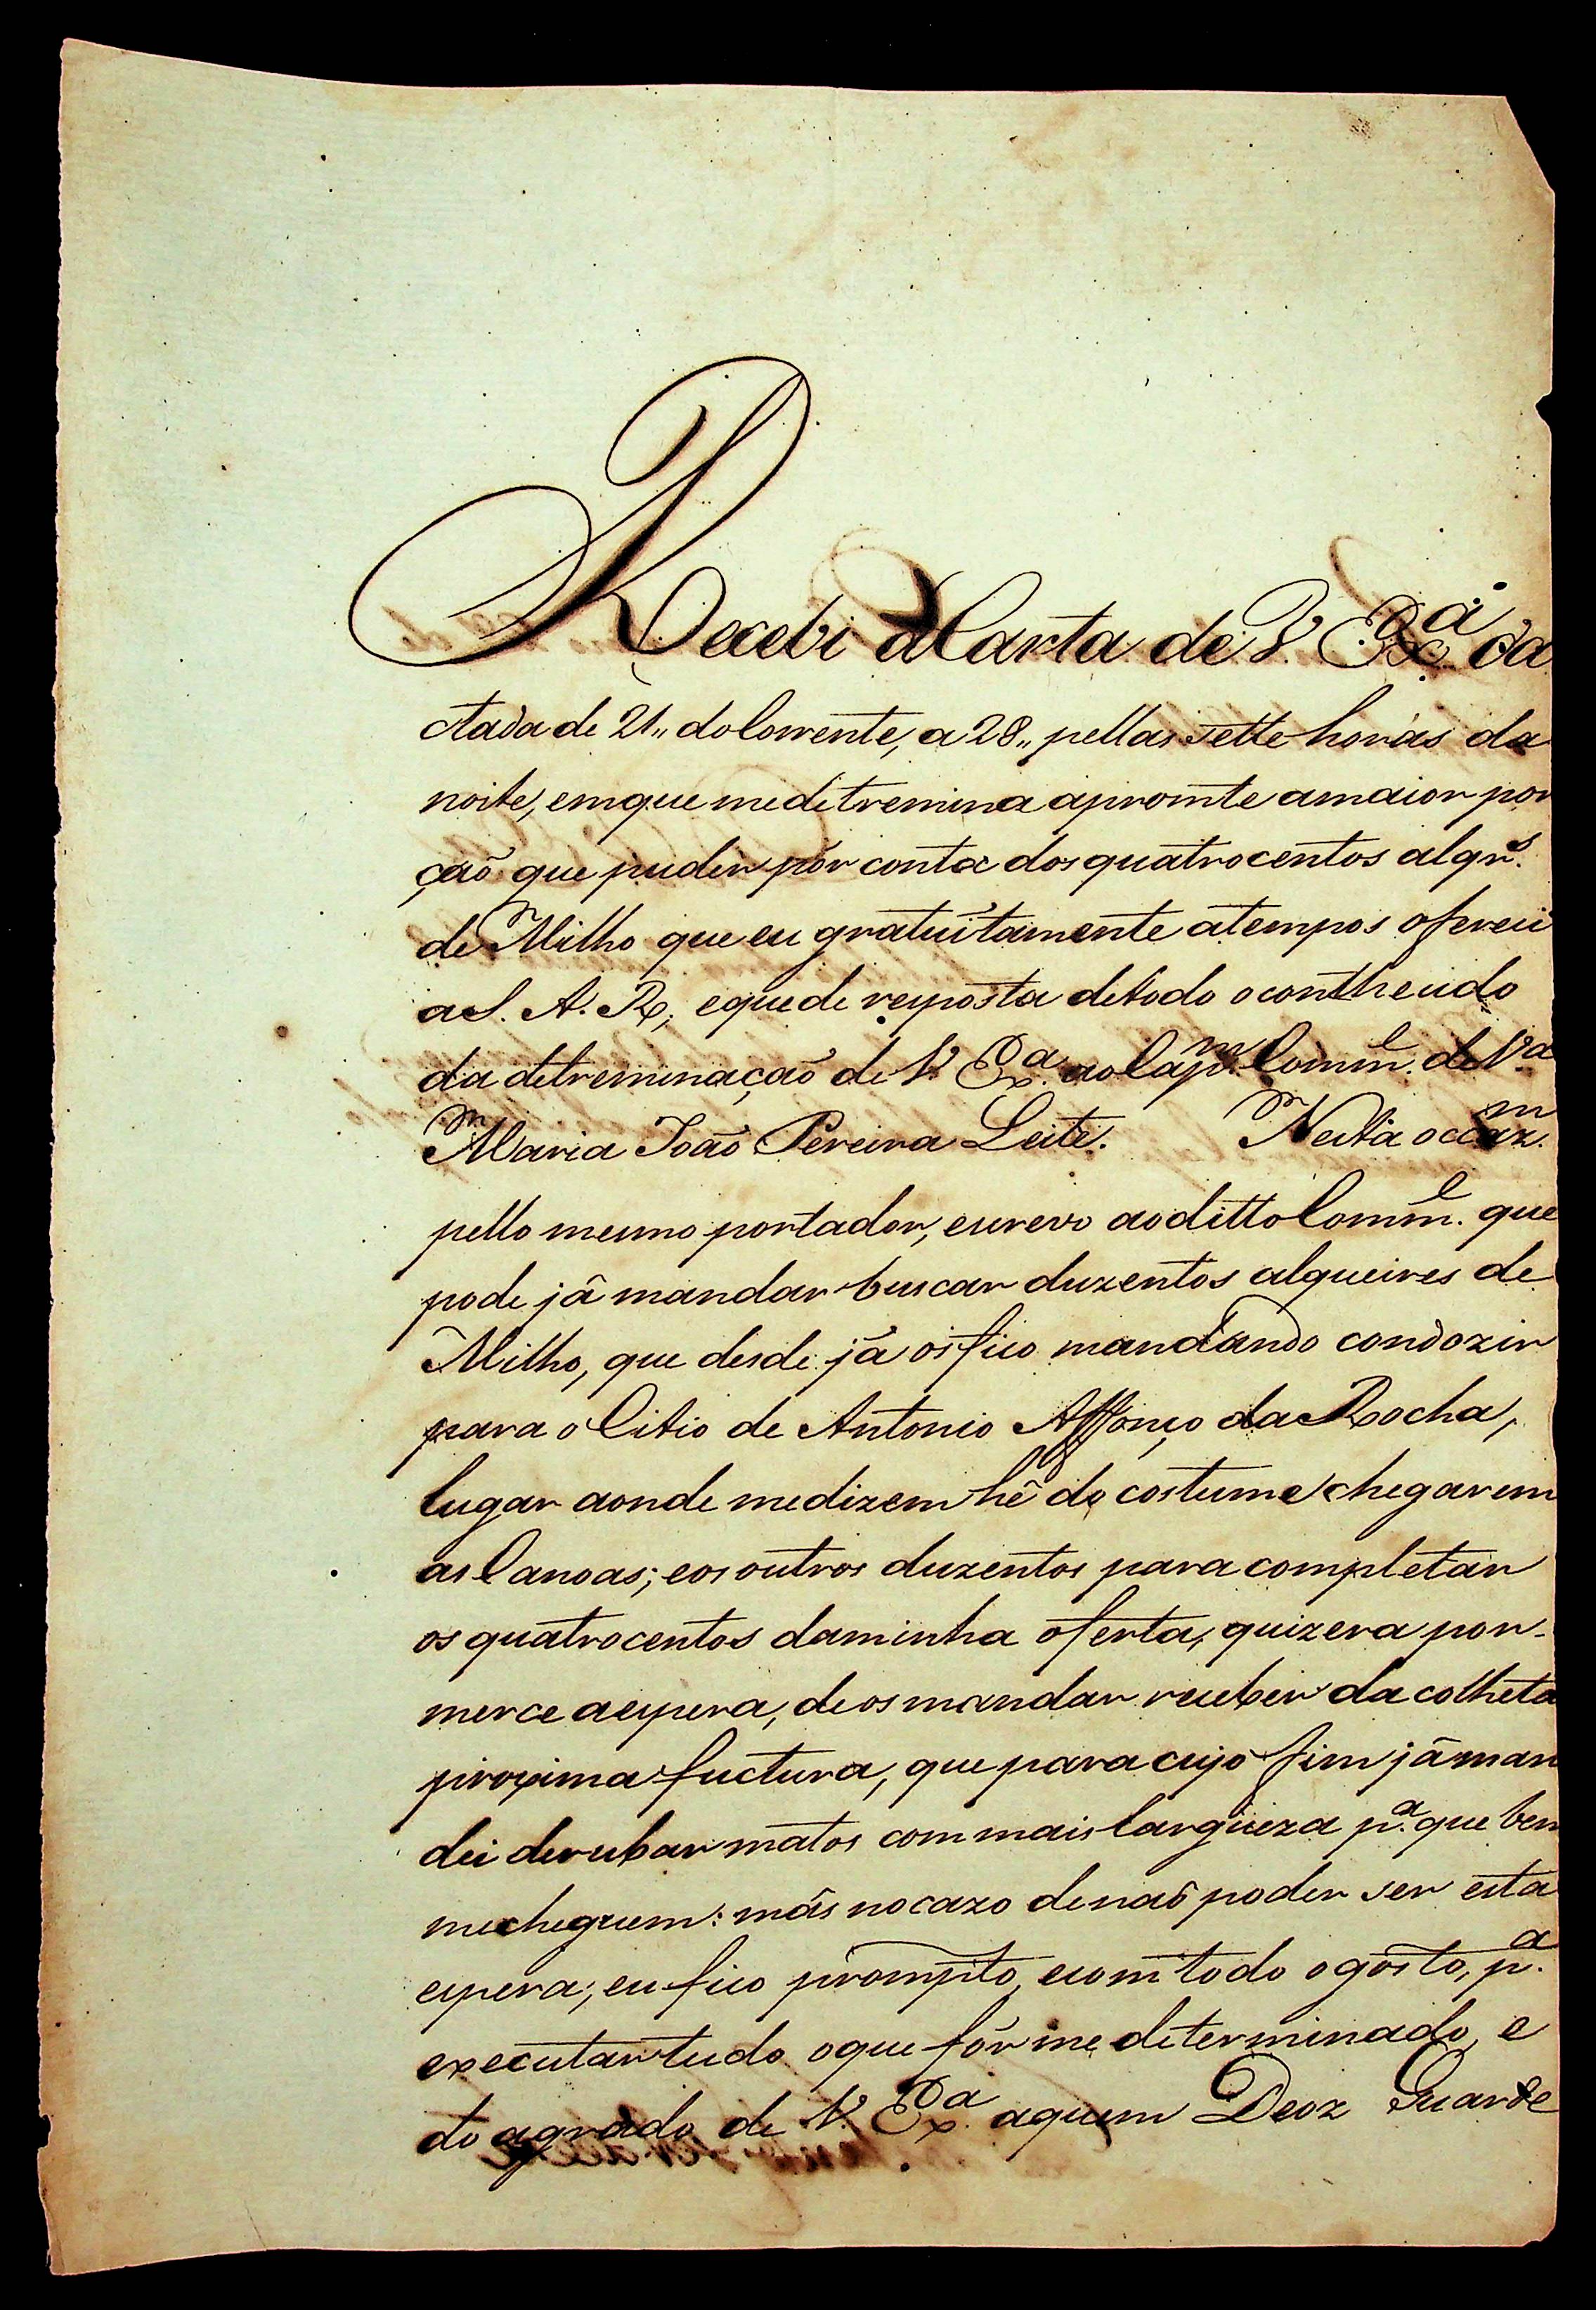 Recebi a Carta de V. Ex.ª da
ctada de 21,, do Corrente, a 28,, pellas sette horas da
noite, emque me detremina apromte amaior por
çaõ que puder pôr conta dos quatrocentos alqr.s
de Milho que eu gratuitamente atempos ofereci
a S. A. R; eque de resposta detodo ocontheudo
da detreminaçaõ de V. Ex.ª ao Cap.m Comm.e de V.ª
Maria Joaõ Pereira Leite. Nesta occaz.m
pello mesmo portador, escrevo aoditto Comm.e que
pode jâ mandar buscar duzentos alqueires de
Milho, que desde já os fico mandando condozir
para o Citio de Antonio Affonço da Rocha,
lugar aonde medizem hê do costume chegarem
as Canoas; eos outros duzentos para completar
os quatrocentos daminha oferta, quizera por-
merce aespera, deos mandar receber da colheta
proxima fuctura, que para cujo fim jâ man
dei derubar matos com mais largueza p.ª que bem
mecheguem: mâs nocazo denaõ poder ser esta
espera; eu fico prompto, ecom todo ogosto, p.ª
executar tudo oque fôr me determinado, e
do agrado de V. Ex.ª aquem Deoz Guarde